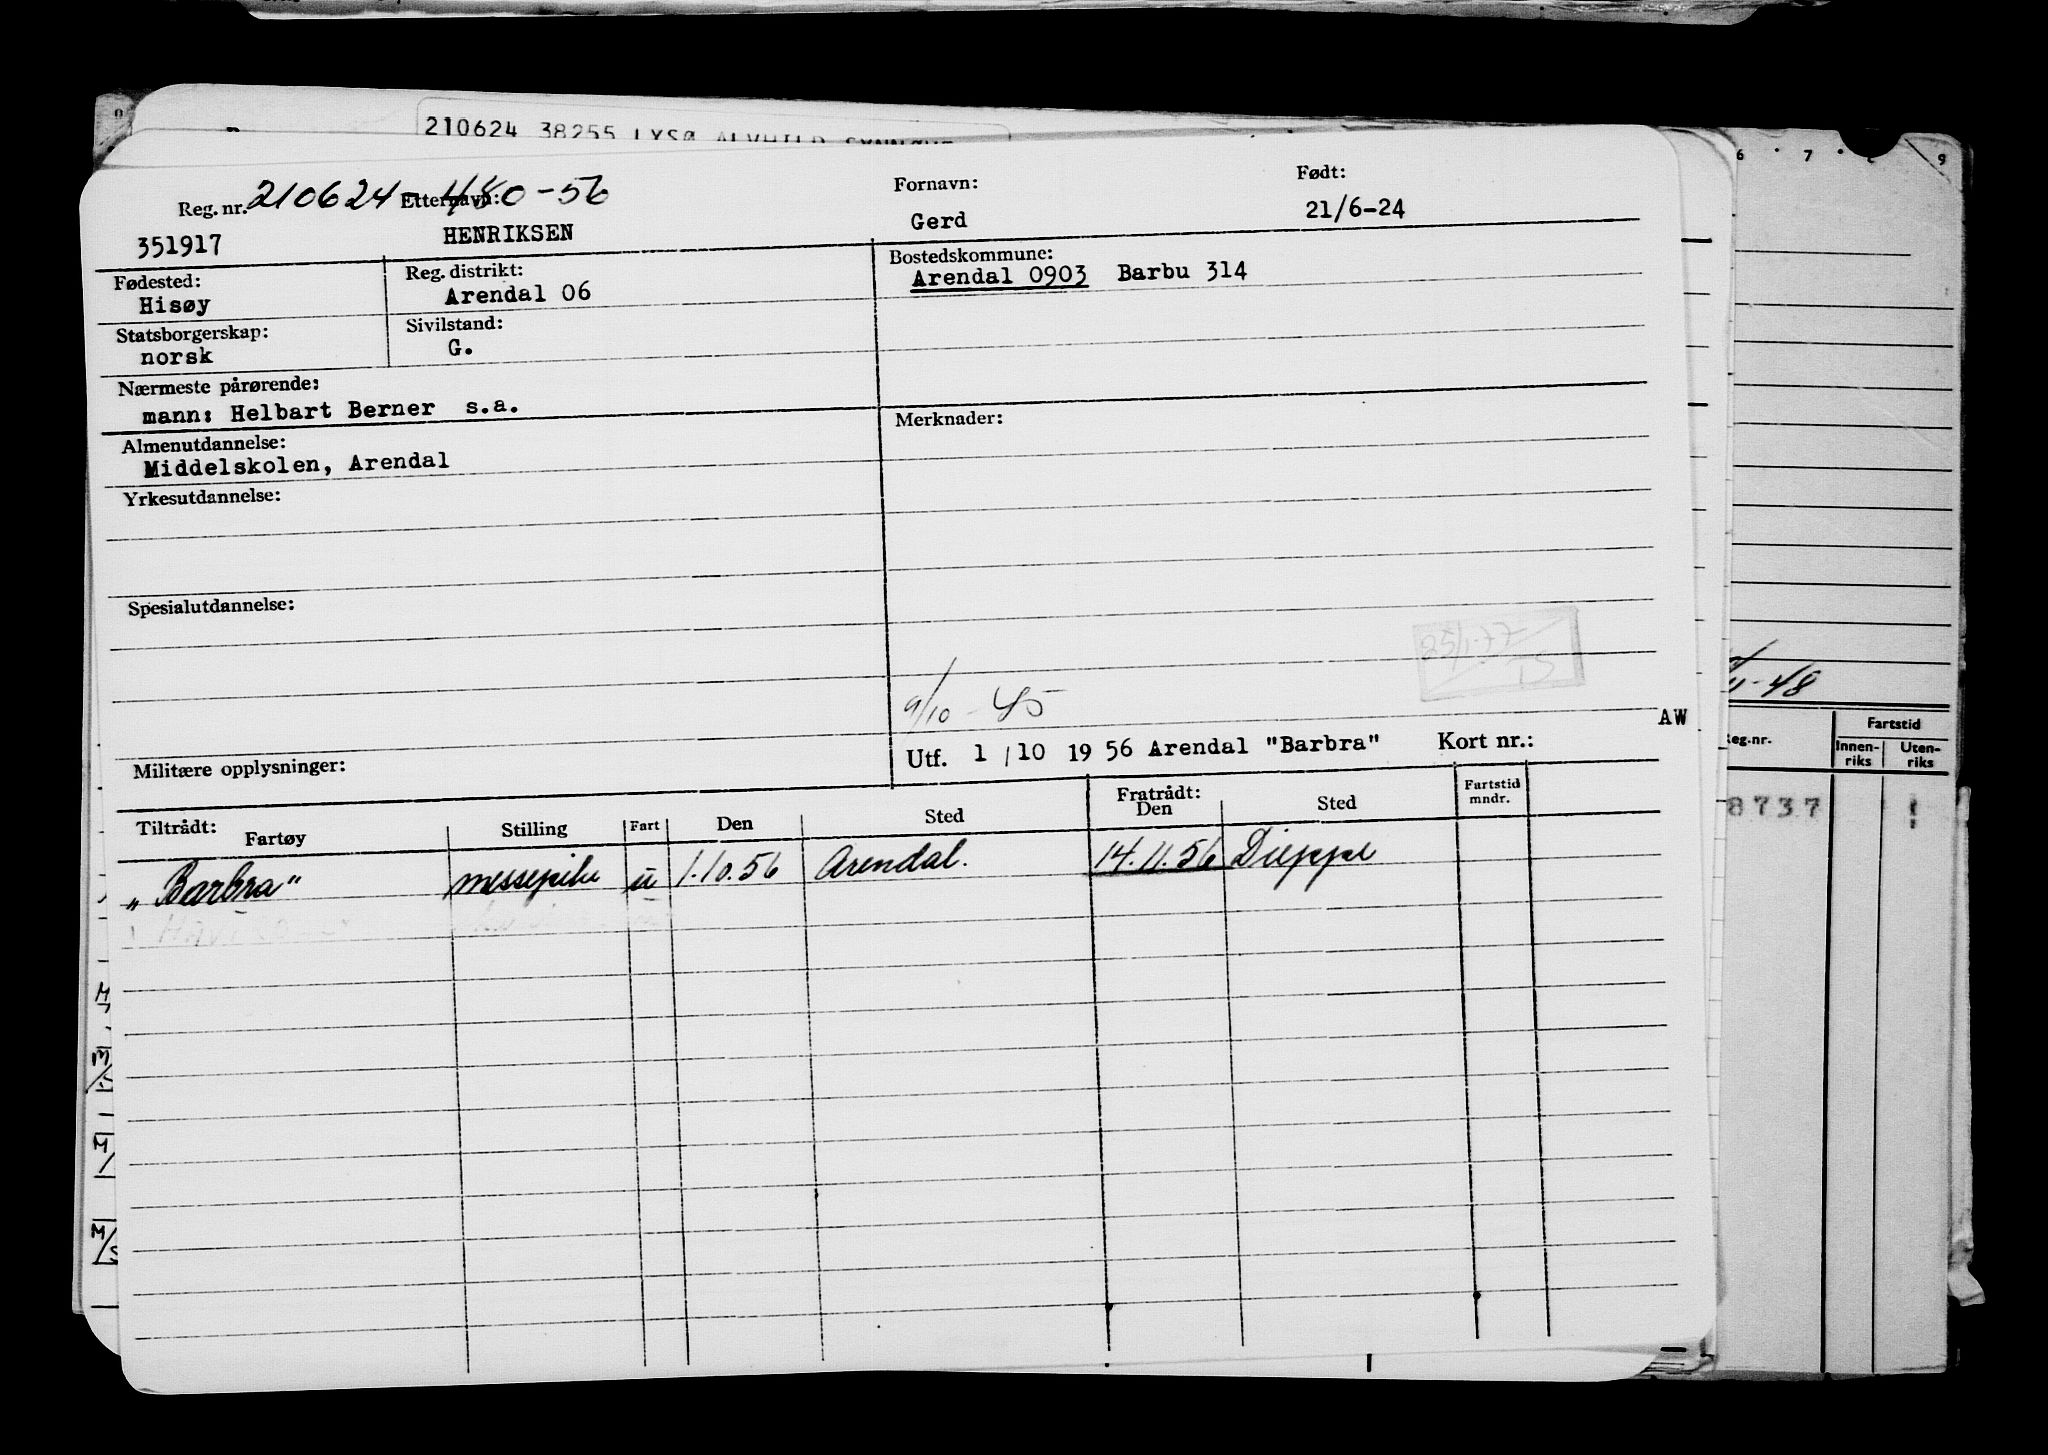 210624 38255 LYSØ ALVHILD
Reg. nr. 210624-480-56 Etternavn: Fornavn: Født:
351917 HENRIKSEN Gerd 21/6-24
Fødested: Reg. distrikt: Bostedskommune:
Hisøy Arendal 06 Arendal 0903 Barbu 314
Statsborgerskap: Sivilstand:
norsk G.
Nærmeste pårørende:
mann: Helbart Berner s.a.
Almenutdannelse: Merknader:
Middelskolen, Arendal
Yrkesutdannelse:
Spesialutdannelse:
25/1-77
TS
9/10-45
AW
Militære opplysninger: Utf. 1/10 19 56 Arendal "Barbra" Kort nr.:
Tiltrådt: Fratrådt: Fartstid
Fartøy Stilling Fart Den Sted Den Sted mndr.
"Barbra" messepike u 1.10.56 Arendal. 14.11.56 Dieppe
6 7 9
11-48
Reg.nr. Fartstid
Innen-riks Uten-riks
8737 1
M/
M/S